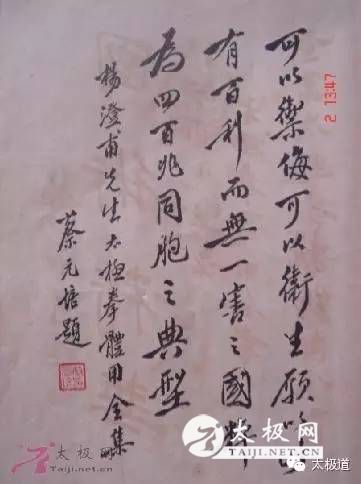 可以禦侮可以衛生願以此
有百利而無一害之國粹
為四百兆同胞之典型
楊澄甫先生太極拳體用全集
蔡元培題
2 13:47
太极网
www.taiji.net.cn
太极
Taiji.net.cn
太极道